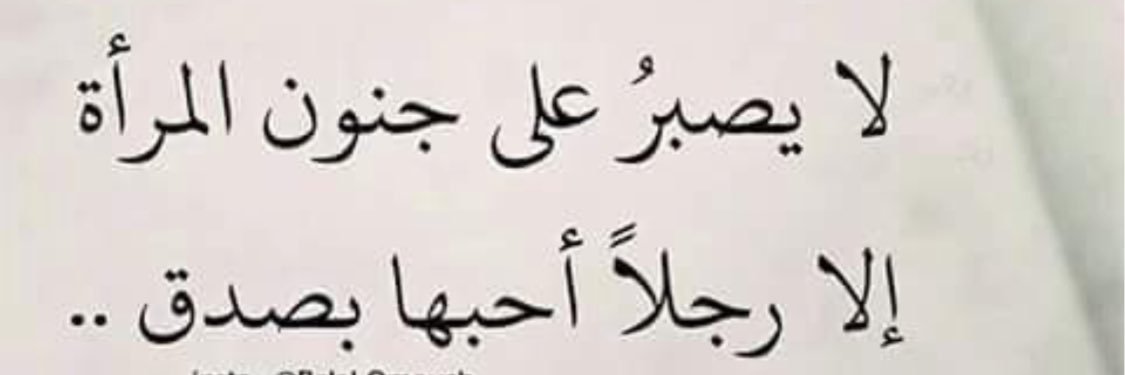 لا يصبرُ على جنون المرأة
إلا رجلاً أحبها بصدق ..